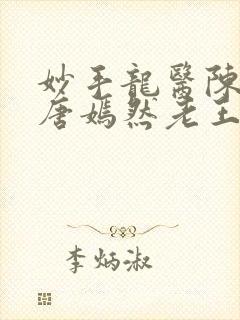 妙手龍醫陳
唐嫣然老王
李炳淑